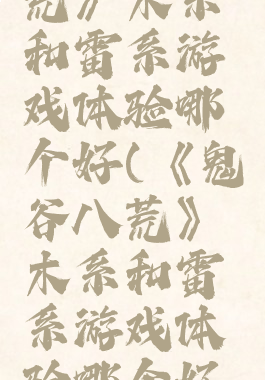 荒》木系
和雷系游
戏体验哪
个好(《鬼
谷八荒》
木系和雷
系游戏体
验哪个好